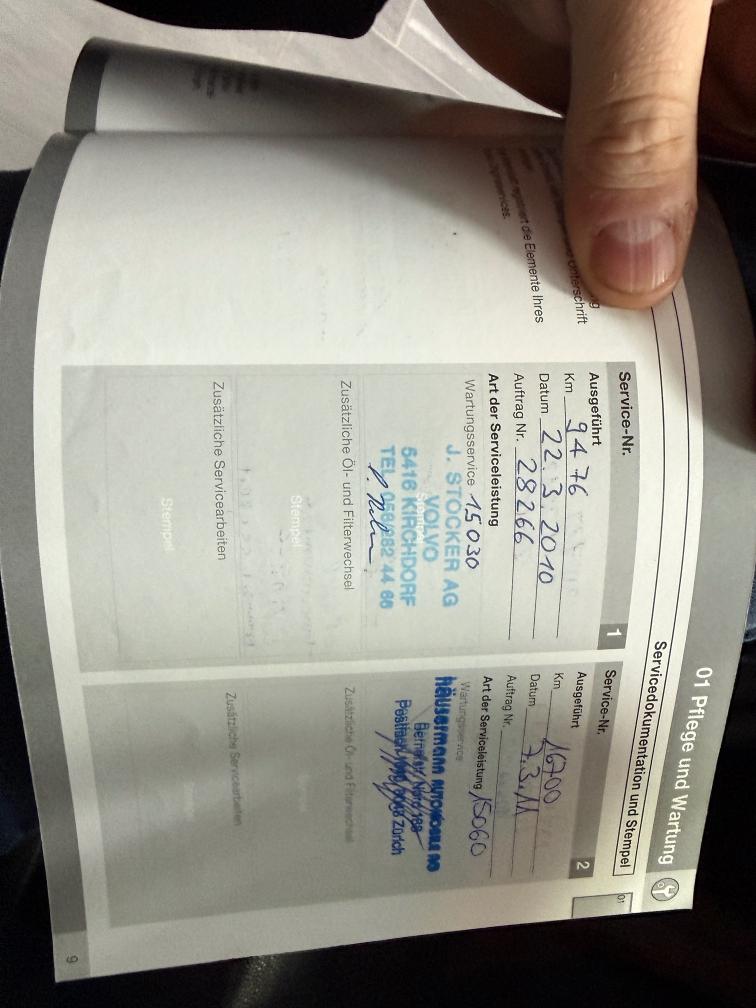 01 Pflege und Wartung
Servicedokumentation und Stempel
01
Unterschrift
die Elemente Ihres
Service-Nr. 1
Ausgeführt
Km 9476
Datum 22.3.2010
Auftrag Nr. 28266
Art der Serviceleistung
Wartungsservice 15030
J. STOCKER AG
VOLVO
5416 KIRCHDORF
TEL 056/282 44 66
Zusätzliche Öl- und Filterwechsel
Stempel
Zusätzliche Servicearbeiten
Stempel
Service-Nr. 2
Ausgeführt
Km 16700
Datum 7.3.11
Auftrag Nr.
Art der Serviceleistung
Wartungsservice 15060
häusermann AUTOMOBILE AG
Zürich
Zusätzliche Öl- und Filterwechsel
Zusätzliche Servicearbeiten
9